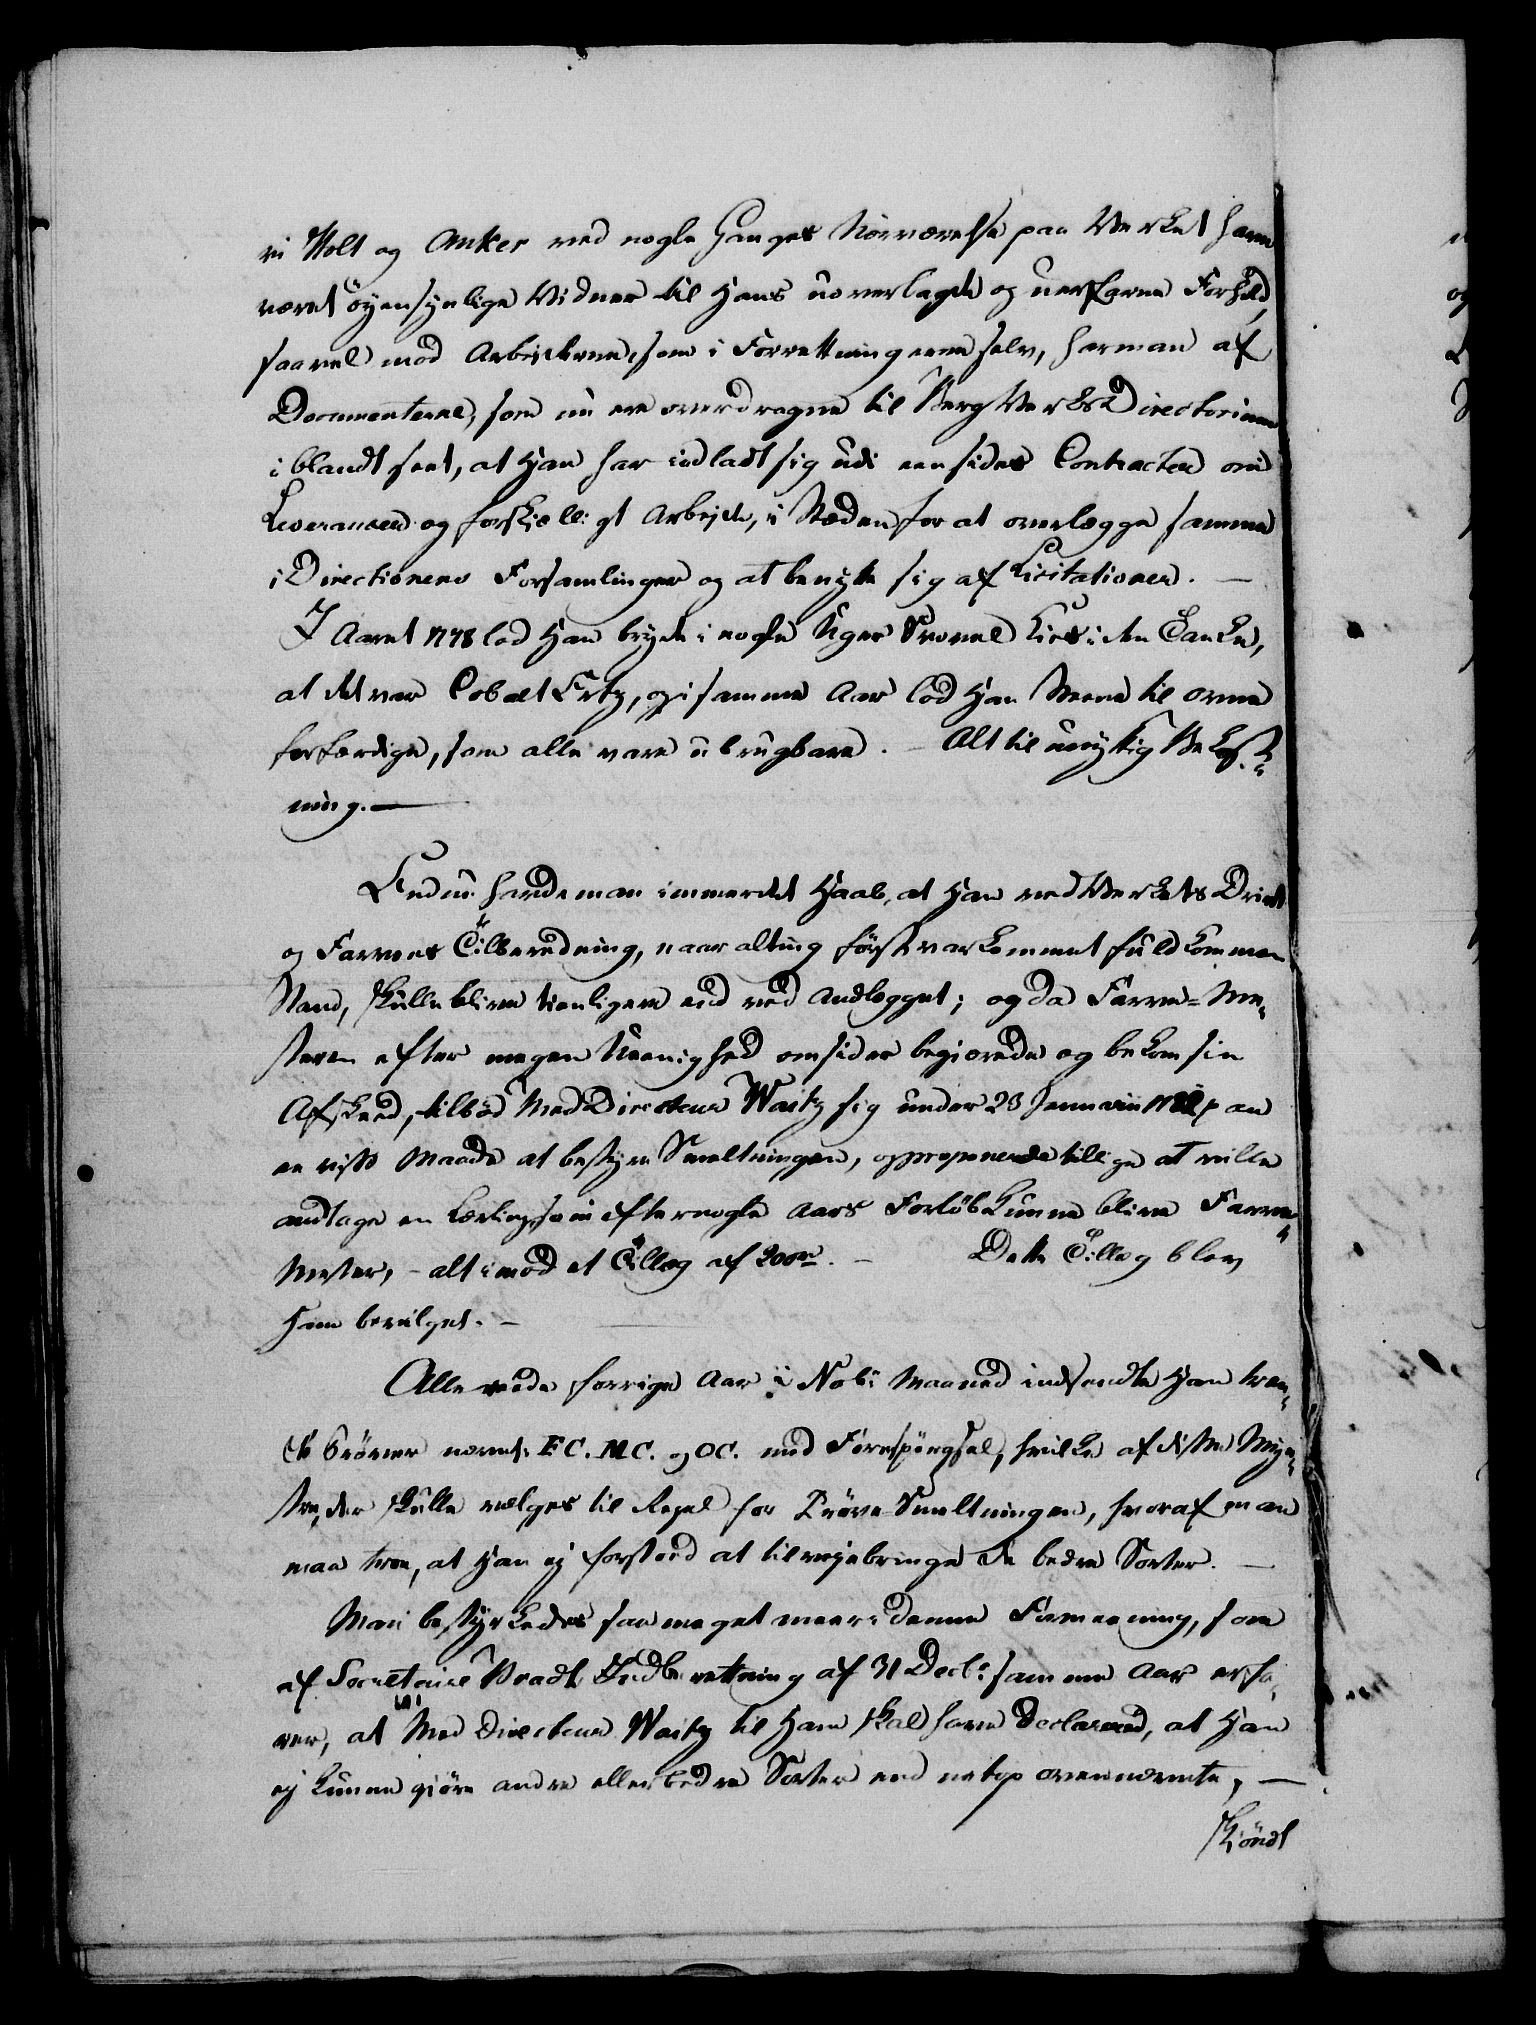 vi Holt og Anker ved nogle Ganges Nærværelse paa Verket have
været öyensynlige Vidner til Hans uoverlagte og uerfarne Forhold,
saavel mod Arbejderne, som i Forrettningerne selv, har man af
Documenterne, som nu ere overdragne til BergVerksDirectorium
iblandt seet, at Han har indladt sig udi eensides Contracter om
Leverancer og forskielligt Arbejde, i Stæden for at overlægge samme
i Directionens Forsamlinger og at benytte sig af Licitationer. —
I Aaret 1778 lod Han bryde i nogle Uger Svovel Kies i den Tanke,
at det var Cobolt Ertz, og i samme Aar lod Han Steene til ovne
forfærdige, som alle vare ubrugbare. – Alt til unyttig Bekost-
ning. —
Endnu havde man immerdet Haab, at Han ved Verkets Drivt
og Farvens Tilberedning, naar alting först var kommet fuldkommen
Stand, skulle blive tienligere end ved Andlegget; og da Farve-Me-
steren efter megen Ueenighed omsider begierede og bekom sin
Afskeed, tilböd MedDirecteur Waitz sig under 23 Januarii paa
en viss Maade at bestyre Smeltningen, og proponerede tillige at ville
andtage en Lærling, som efter nogle Aars Forlöb kunne blive Farve-
Mester, – alt imod et Tillæg af 200 r. – Dette Tillæg blev
Ham bevilget. –
Allerede forrige Aar i Nobr: Maaned indsendte Han tren-
de Pröver nævnt: FC. MC. og OC. med Forespörgsel, hvilke af disse Myn-
stre, der skulle vælges til Regel for Pröve Smeltningen, hvoraf man
maa troe, at Han ej forstoed at tilvejebringe de bedre Sorter. —
Man bestyrkedes saa meget meer i denne Formeening, som
af Secretaire Bradt Indberettning af 31 Decbr: samme Aar erfa-
res, at Med Directeur Waitz til Ham skal have declareret, at Han
ej kunne giöre andre eller bedre Sorter end netop ovennævnte, —
Skiöndt